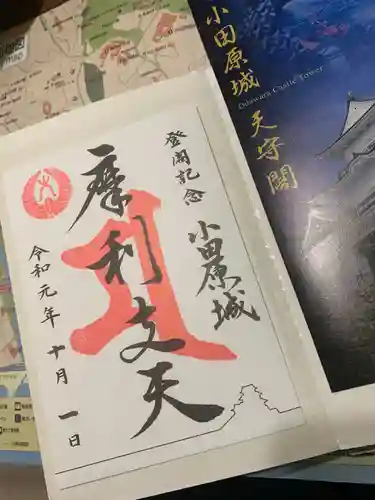 小田原城 天守閣
Odawara Castle Tower
登閣記念
小田原城
摩利支天
令和元年 十月 一日